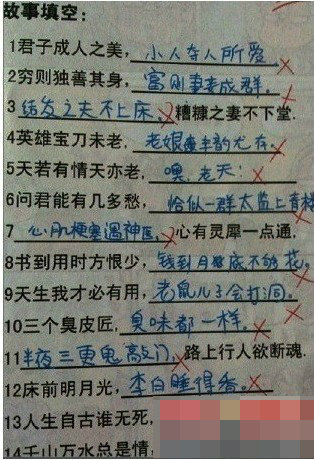 故事填空：
1君子成人之美，小人夺人所爱。
2穷则独善其身，富则妻妾成群。
3结发之夫不上床，糟糠之妻不下堂.
4英雄宝刀未老，老娘风韵尤存。
5天若有情天亦老，噢,老天!
6问君能有几多愁，恰似一群太监上青楼
7心肌梗塞遇神医，心有灵犀一点通，
8书到用时方恨少，钱到月底不够花。
9天生我才必有用，老鼠儿子会打洞。
10三个臭皮匠，臭味都一样。
11半夜三更鬼敲门，路上行人欲断魂.
12床前明月光，李白睡得香。
13人生自古谁无死，
14千山万水总是情，